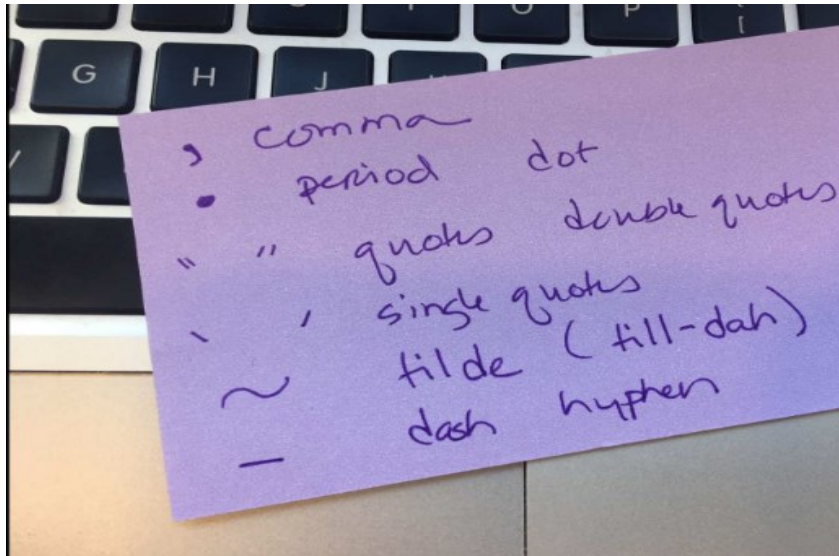 U O P [
G H J
, comma
. period dot
" " quotes double quotes
' ' single quotes
~ tilde (till-dah)
– dash hyphen